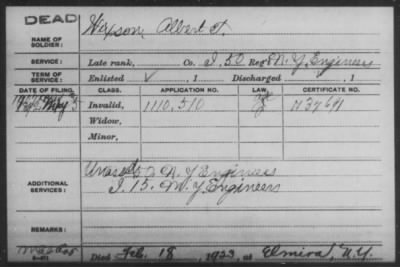 DEAD
NAME OF SOLDIER:
Albert T.
SERVICE:
Late rank, Co. I, 50 Reg't N.Y. Engineers
TERM OF SERVICE:
Enlisted , 1 Discharged , 1
DATE OF FILING. CLASS. APPLICATION NO. LAW. CERTIFICATE NO.
Invalid, 1110,510
Widow,
Minor,
ADDITIONAL SERVICES:
N.Y. Engineers
I. 15. N.Y. Engineers
REMARKS:
Died Feb. 18, 1923, at Elmira, N.Y.